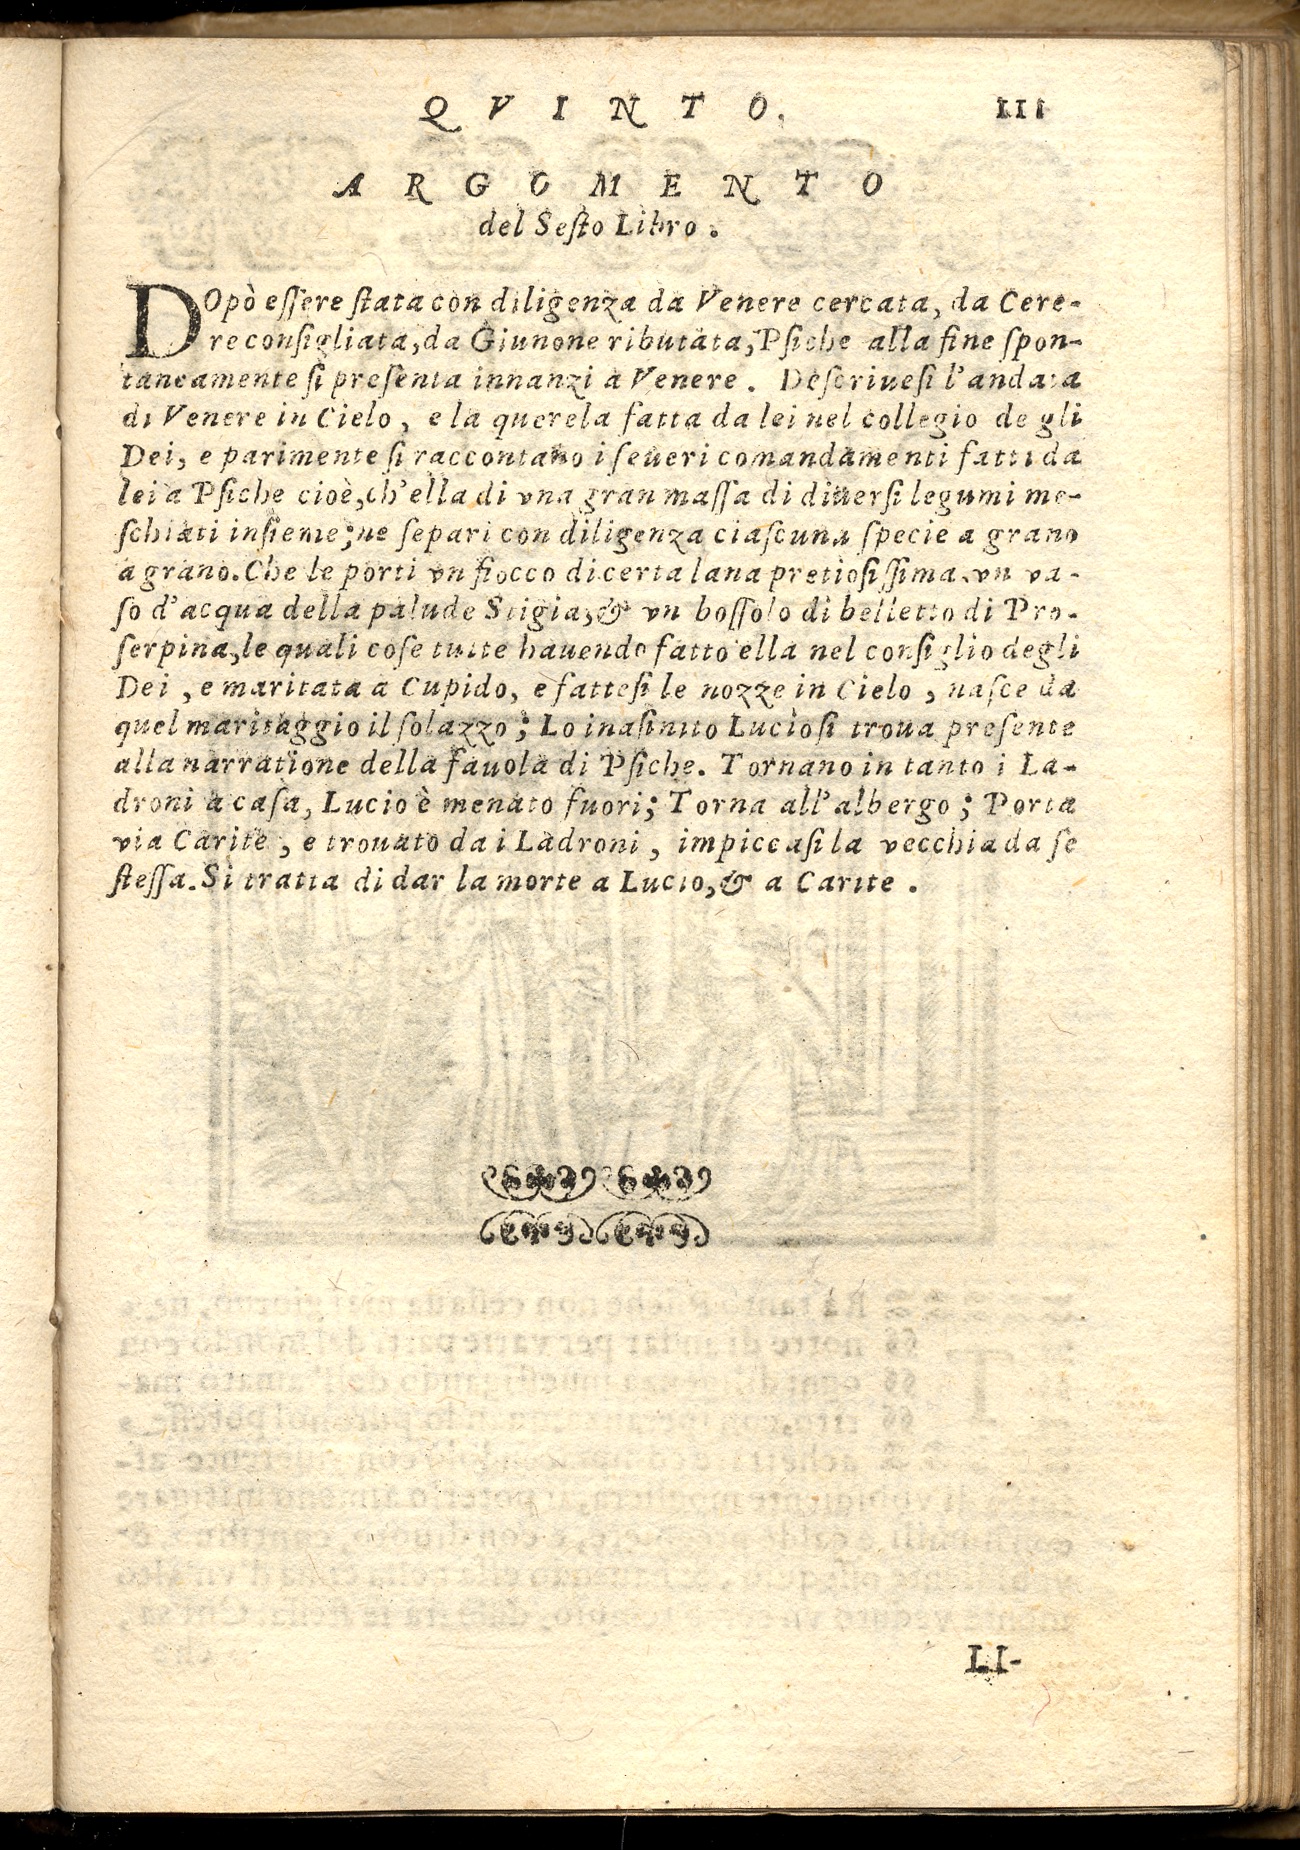 QVINTO. 111
ARGOMENTO
del Seſto Libro.
DOpò eſſere ſtata con diligenza da Venere cercata, da Cere-
re conſigliata, da Giunone ributata, Pſiche alla fine ſpon-
taneamente ſi preſenta innanzi à Venere. Deſcriueſi l'andata
di Venere in Cielo, e la querela fatta da lei nel collegio de gli
Dei, e parimente ſi raccontano i ſeueri comandamenti fatti da
lei a Pſiche cioè, ch'ella di vna gran maſſa di diuerſi legumi me-
ſchiati inſieme; ne ſepari con diligenza ciaſcuna ſpecie a grano
a grano. Che le porti vn fiocco di certa lana pretioſiſſima, vn va-
ſo d'acqua della palude Stigia, & vn boſſolo di belletto di Pro-
ſerpina, le quali coſe tutte hauendo fatto ella nel conſiglio degli
Dei, e maritata à Cupido, e fatteſi le nozze in Cielo, naſce da
quel maritaggio il ſolazzo; Lo inaſinito Lucio ſi troua preſente
alla narratione della fauola di Pſiche. Tornano in tanto i La-
droni à caſa, Lucio è menato fuori; Torna all'albergo; Porta
via Carite, e trouato da i Ladroni, impiccaſi la vecchia da ſe
ſteſſa. Si tratta di dar la morte a Lucio, & a Carite.
LI-